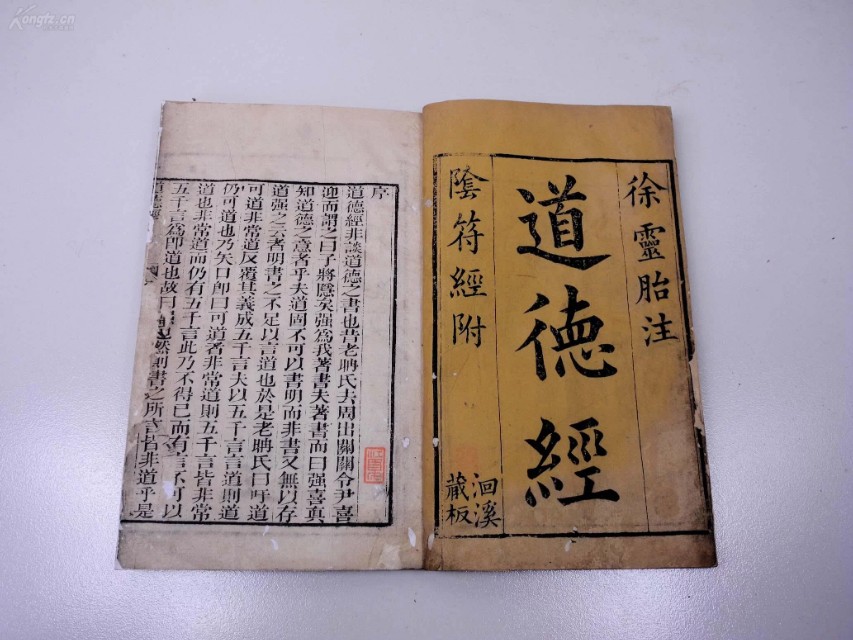 Kongfz.cn
徐靈胎注
道徳經
隂符經附
洄溪
藏板
序
道德經非談道德之書也昔老聃氏去周出關關令尹喜
迎而謂之曰子將隱矣强為我著書夫著書而曰强喜真
知道德之意者乎夫道固不可以書明而非書又無以存
道强之云者明書之不足以言道也於是老聃氏曰吁道
可道非常道反覆其義成五千言夫以五千言言道則道
仍可道也乃矢口卽曰可道者非常道則五千言皆非常
道也非常道而仍有五千言此乃不得已而有言不可以
五千言為卽道也故曰然則書之所言皆非道乎是
道德經